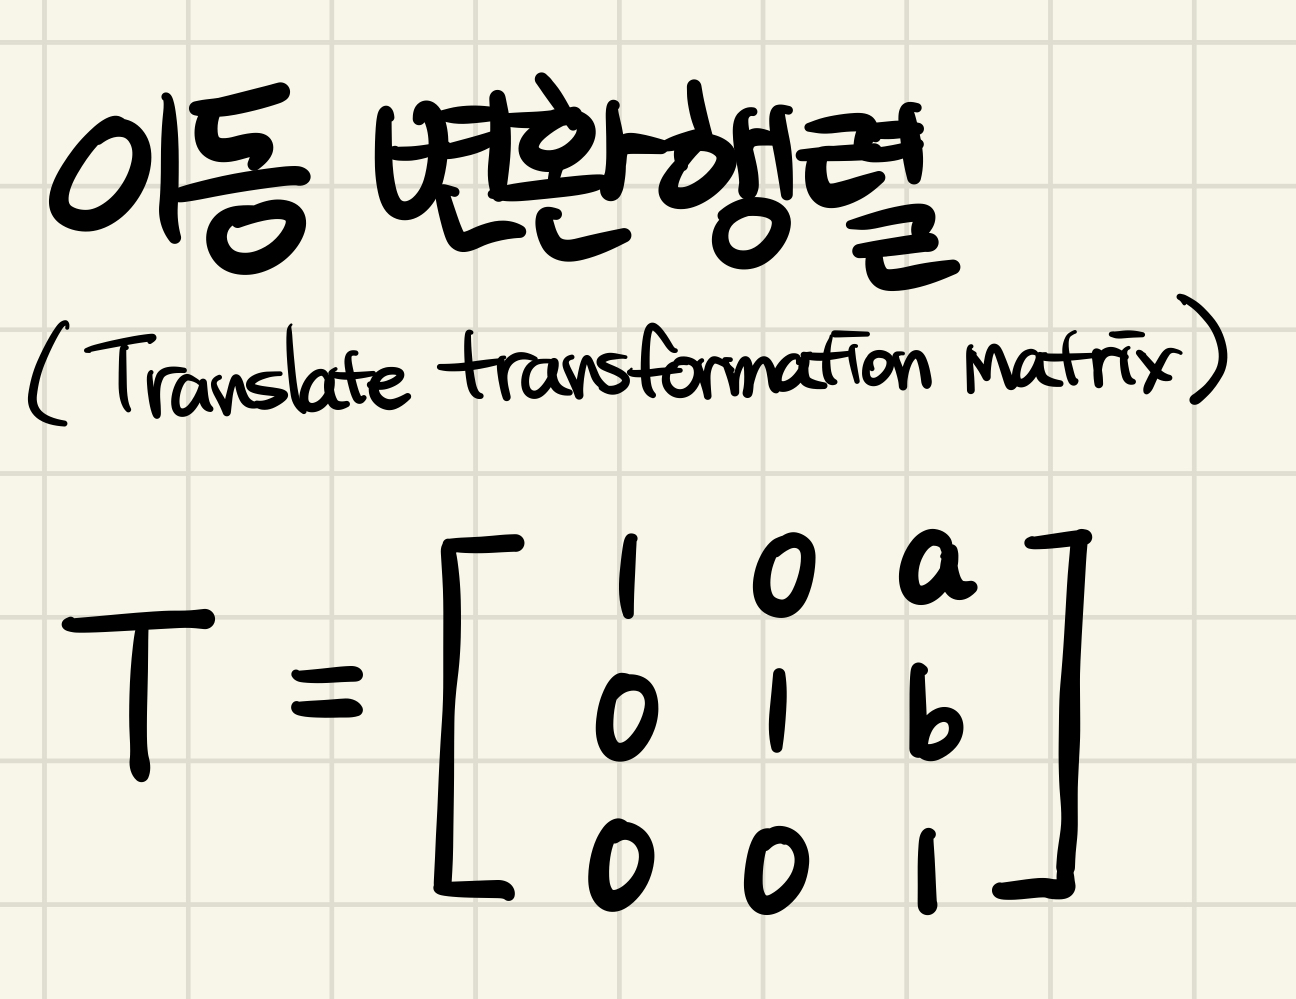 이동 변환행렬
(Translate transformation matrix)
T = [ 1 0 a
0 1 b
0 0 1 ]